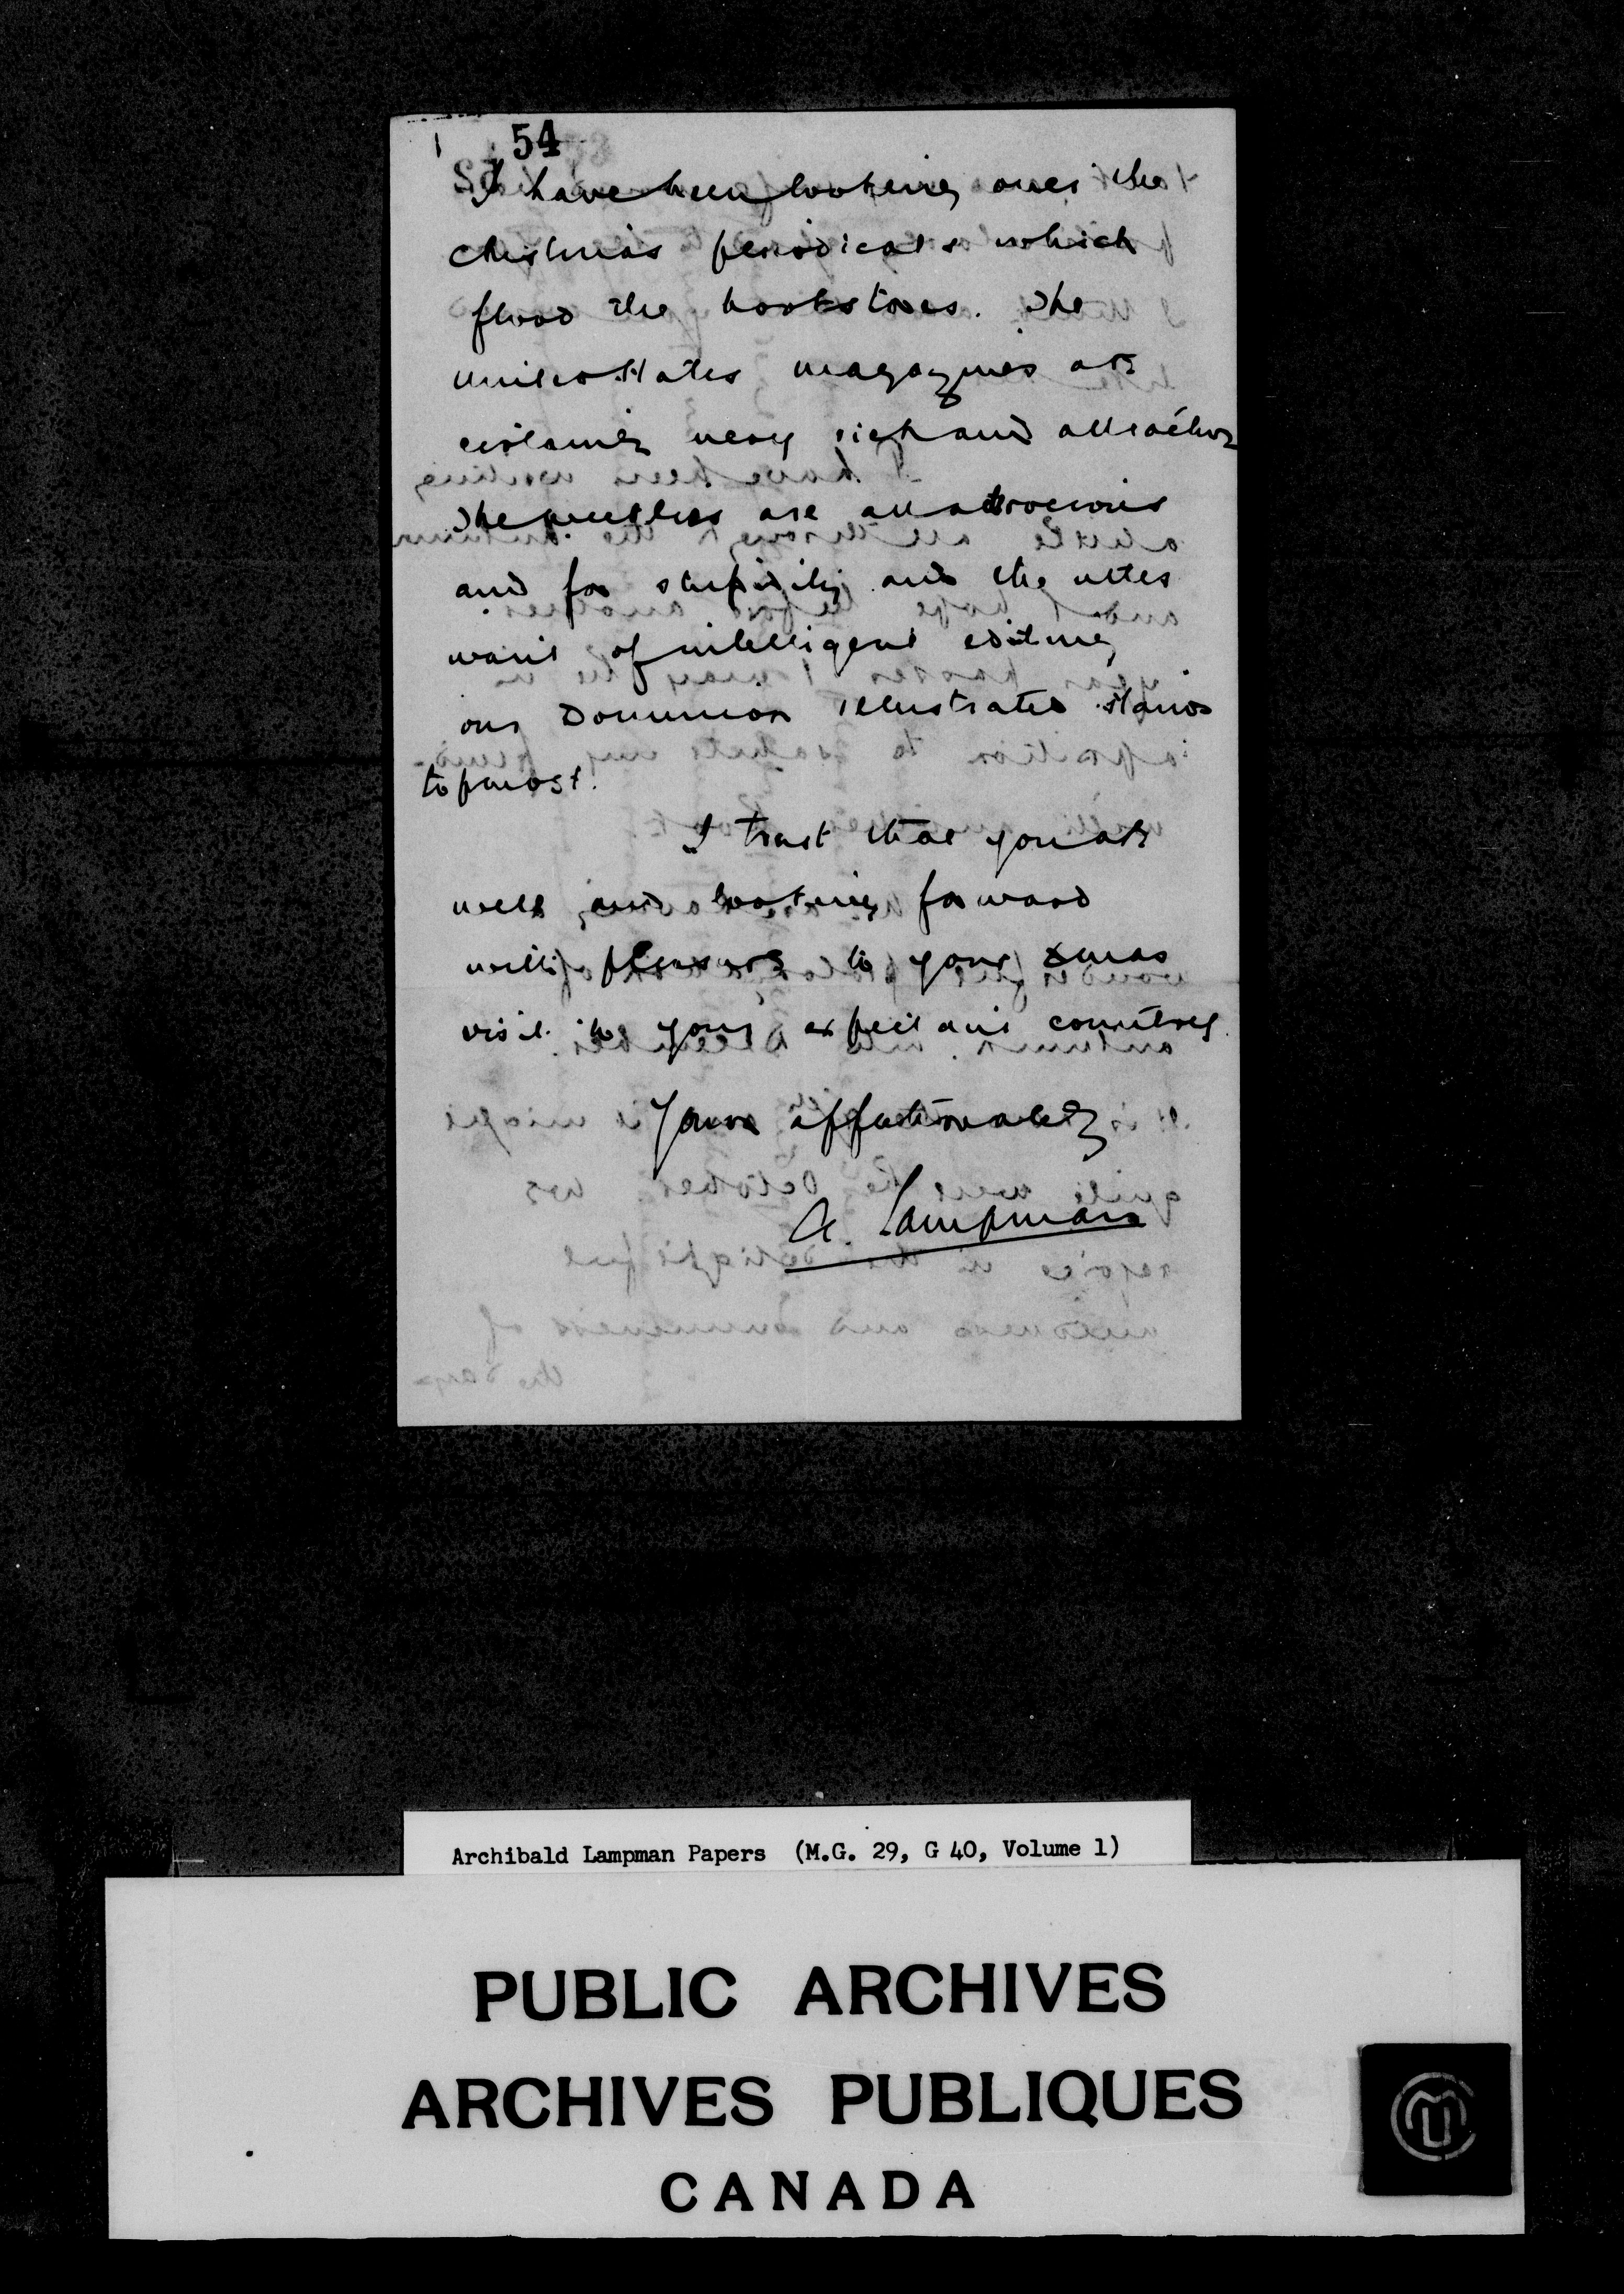 54
I have been looking over the
Christmas periodicals which
flood the bookstores. The
United States magazines are
certainly very rich and attractive
The weeklies are all atrocious
and for stupidity and the utter
want of intelligent editing
our Dominion Illustrated stands
topmost.
I trust that you are
well and looking forward
with pleasure to your Xmas
visit to your expectant country.
Yours affectionately
A. Lampman
Archibald Lampman Papers (M.G. 29, G 40, Volume 1)
PUBLIC ARCHIVES
ARCHIVES PUBLIQUES
CANADA